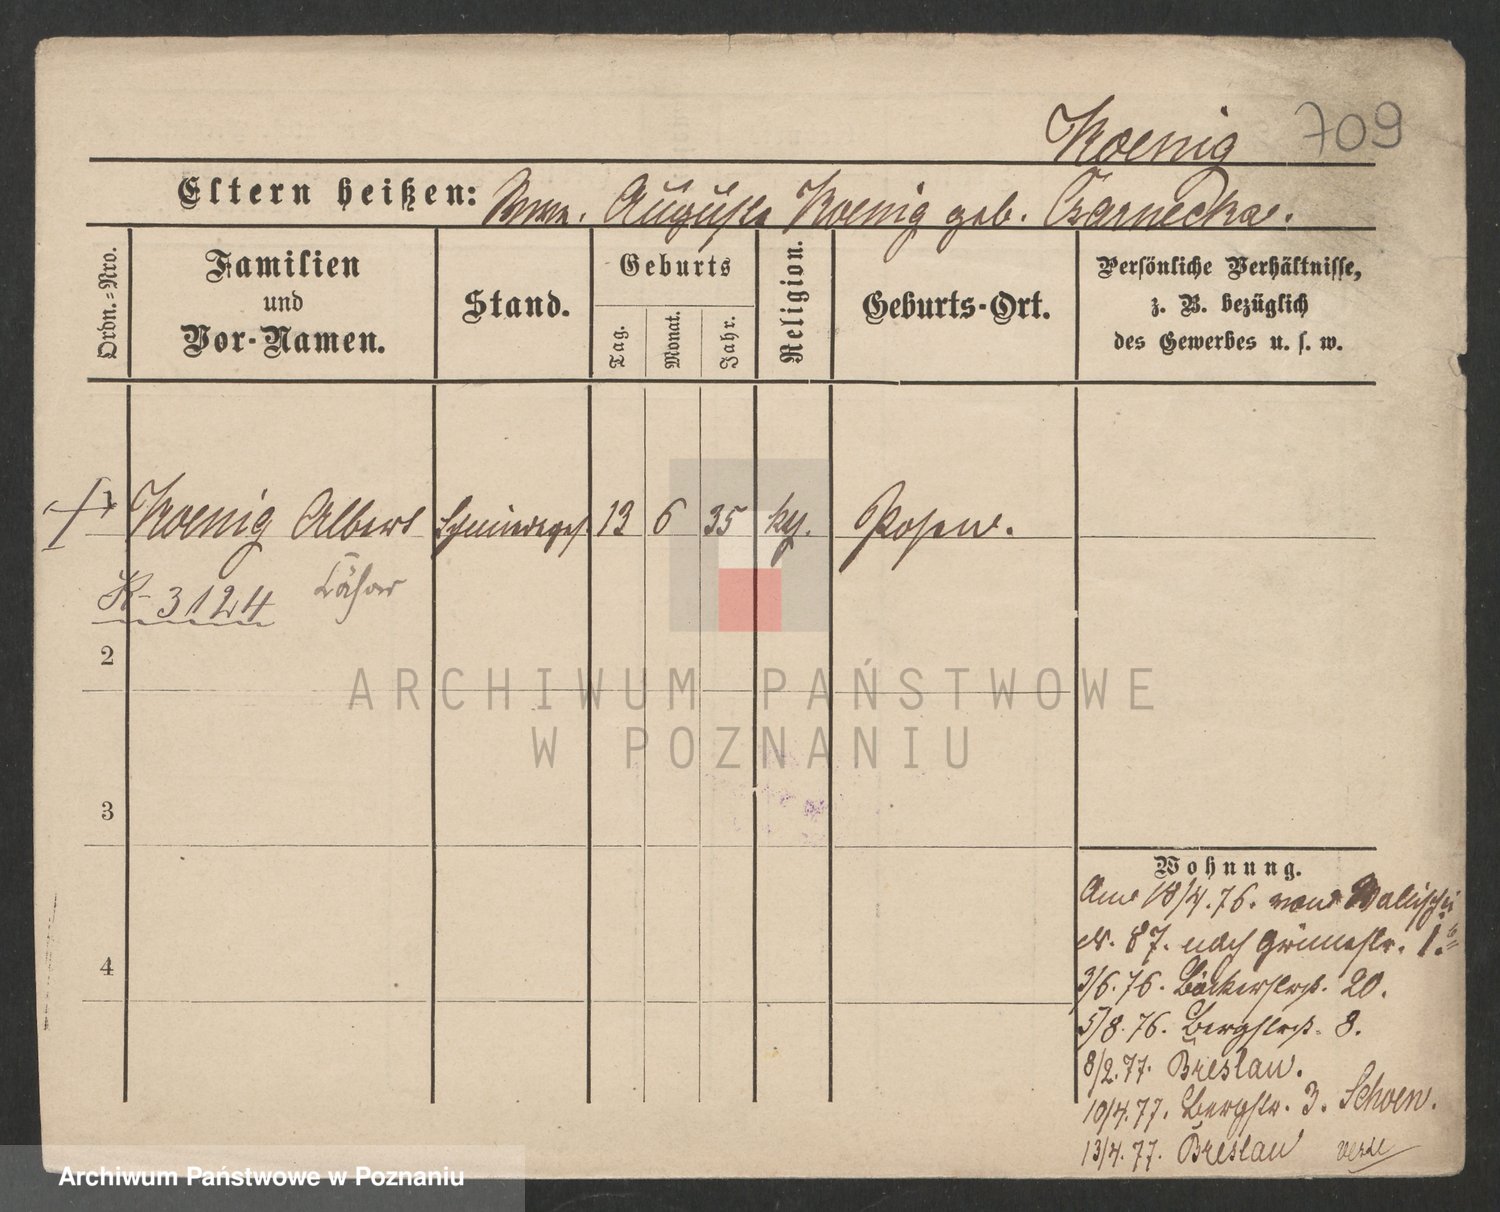 Koenig 709
Eltern heißen: Auguste Koenig geb. Czarnecka.
Ordn.-Nro.
Familien
und
Vor-Namen.
Stand.
Geburts
Tag.
Monat.
Jahr.
Religion.
Geburts-Ort.
Persönliche Verhältnisse,
z. B. bezüglich
des Gewerbes u. s. w.
1 Koenig Albert Schmiedeges. 13 6 35 Posen.
K 3124
2
ARCHIWUM PAŃSTWOWE
W POZNANIU
3
4
Wohnung.
Am 18/4.76. von Wallischei
N. 87. nach Grünestr. 1.
3/6.76. Bäckerstrß. 20.
5/8.76. Bergstrß. 8.
8/2.77. Breslau.
10/4.77. Bergstr. 3. Schoen.
13/4.77. Breslau verte
Archiwum Państwowe w Poznaniu